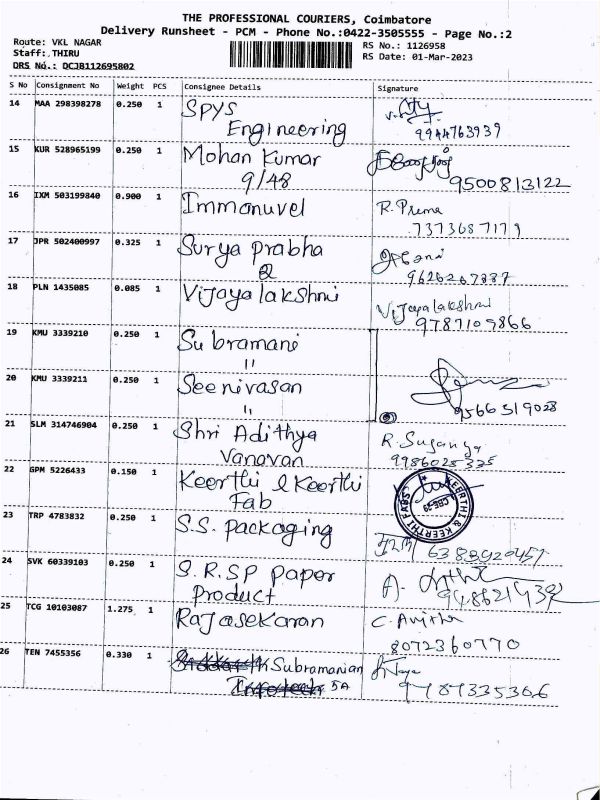 THE PROFESSIONAL COURIERS, Coimbatore
Delivery Runsheet - PCM - Phone No.:0422-3505555 - Page No.:2
Route: VKL NAGAR
RS No.: 1126958
Staff: THIRU
RS Date: 01-Mar-2023
DRS No.: DCJB112695802
S No Consignment No Weight PCS Consignee Details Signature
14 MAA 298398278 0.250 1 SPYS
Engineering 9944763939
15 KUR 528965199 0.250 1 Mohan Kumar
9/48 9500813122
16 IXM 503199840 0.900 1 Immanuvel R. Prema
7373687179
17 JPR 502400997 0.325 1 Surya prabha
2 9626267887
18 PLN 1435085 0.085 1 Vijaya lakshmi Vijayalakshmi
9787109866
19 KMU 3339210 0.250 1 Subramani
"
20 KMU 3339211 0.250 1 Seenivasan
" 9566319028
21 SLM 314746904 0.250 1 Shri Adithya R. Suganya
Vanavan 9986025325
22 GPM 5226433 0.150 1 Keerthi & Keerthi
Fab KEERTHI & KEERTHI FABS
23 TRP 4783832 0.250 1 S.S. packaging
24 SVK 60339103 0.250 1 S.R.SP paper
product
25 TCG 10103087 1.275 1 Rajasekaran C. Anitha
8072360770
26 TEN 7455356 0.330 1 K Subramanian
5A